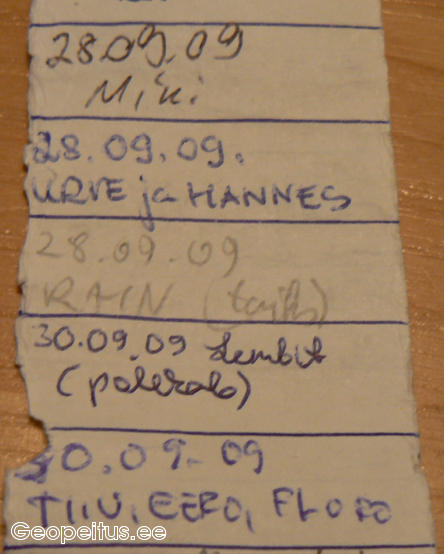 28.09.09
Miki
28.09.09.
URVE ja HANNES
28.09.09
RAIN
30.09.09 Lembit
30.09.09
TIIU, EERO,
Geopeitus.ee